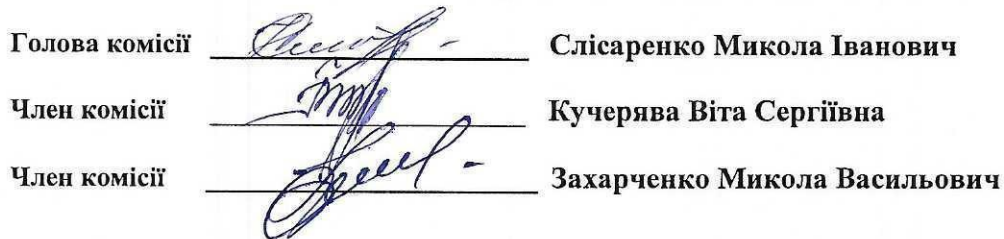 Голова комісії Слісаренко Микола Іванович
Член комісії Кучерява Віта Сергіївна
Член комісії Захарченко Микола Васильович